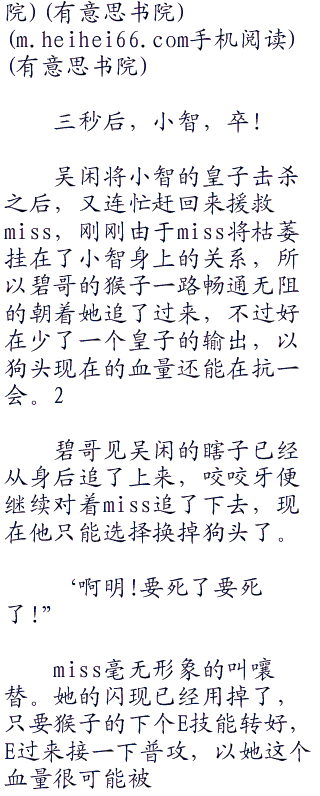 院)(有意思书院)
(m.heihei66.com手机阅读)
(有意思书院)
三秒后，小智，卒!
吴闲将小智的皇子击杀
之后，又连忙赶回来援救
miss，刚刚由于miss将枯萎
挂在了小智身上的关系，所
以碧哥的猴子一路畅通无阻
的朝着她追了过来，不过好
在少了一个皇子的输出，以
狗头现在的血量还能在抗一
会。2
碧哥见吴闲的瞎子已经
从身后追了上来，咬咬牙便
继续对着miss追了下去，现
在他只能选择换掉狗头了。
‘啊明!要死了要死
了!”
miss毫无形象的叫嚷
替。她的闪现已经用掉了，
只要猴子的下个E技能转好,
E过来接一下普攻，以她这个
血量很可能被